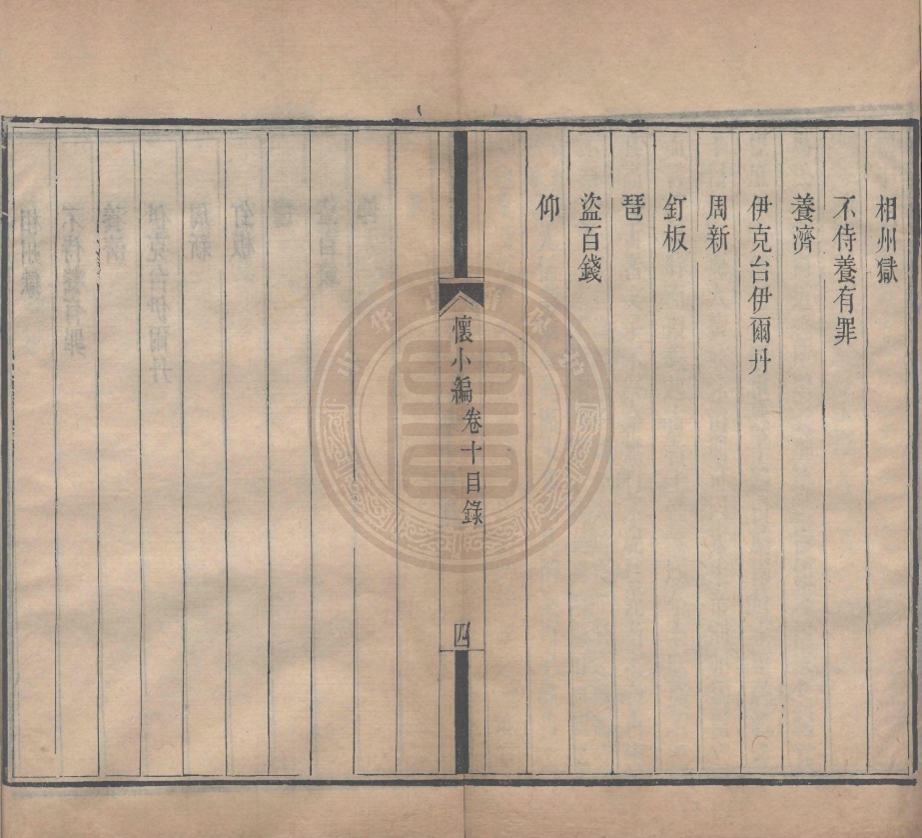 相州獄
不侍養有罪
養濟
伊克台伊爾丹
周新
釘板
琶
盜百錢
仰
懷小編卷十目錄
四